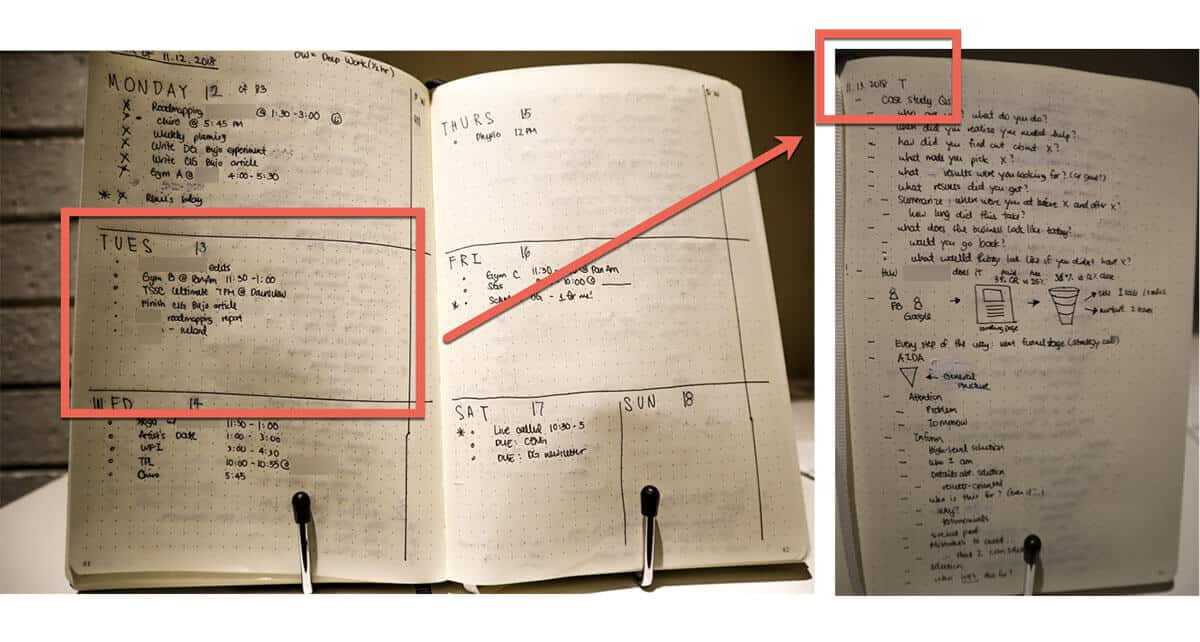 OF 11.12.2018
DW = Deep Work (½ hr)
MONDAY 12 OF B3
Roadmapping @ 1:30-3:00 6
Chiro @ 5:45 PM
Weekly planning
Write DG Bujo experiment
Write CIG Bujo article
Gym A @ 4:00-5:30
TUES 13
edits
Gym B @ PanAm 11:30-1:00
TSSC Ultimate 7PM @
Finish CIG Bujo article
roadmapping report
WED 14
11:30 - 1:00
Artist's Date 1:00 - 3:00
WFI 3:00 - 4:30
TFL 10:00 - 10:55 @
Chiro 5:45
81
THURS 15
Physio 12PM
FRI 16
Gym C 11:30 @ Pan Am
10:00 @
- 1 for me!
SAT 17
Live called 10:30-5
DUE:
DUE: DG newsletter
SUN 18
82
11.13.2018 T
- Case Study Qs
- what do you do?
- when did you realize you needed help?
- how did you find out about X?
- what made you pick X?
- what results were you looking for? (or goal?)
- what results did you get?
- Summarize: where were you at before X and after X?
- how long did this take?
- what does the business look like today?
- would you go back?
- what would today look like if you didn't have X?
- How does it
FB
Google
landing page
- Every step of the way: want funnel stage (strategy call)
- AIDA
General
structure
- Attention
- Problem
- Tomorrow
- Inform
- High-level solution
- who I am
- Details abt. solution
- results-oriented
- who is this for?
- why?
- testimonials
- social proof
- Mistakes to avoid
- that I can solve
- solution